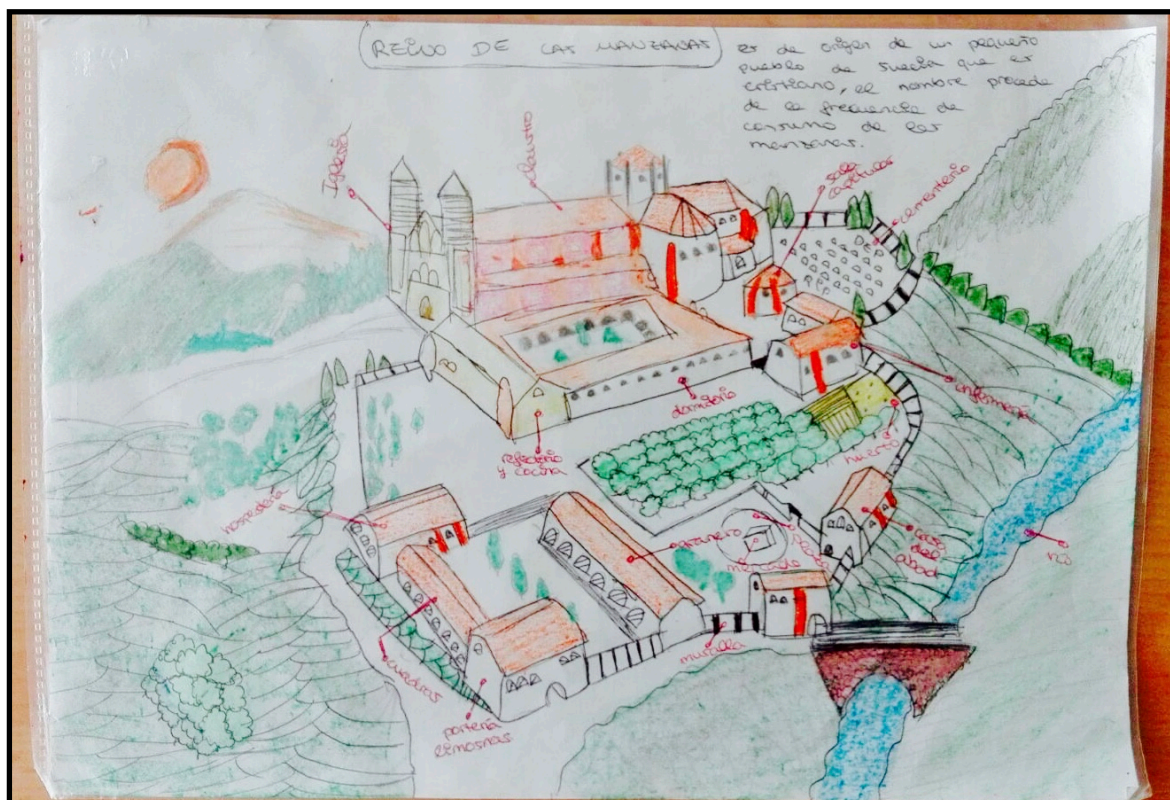 REINO DE LAS MANZANAS
es de origen de un pequeño
pueblo de Suecia que es
cristiano, el nombre procede
de la frecuencia de
consumo de las
manzanas.
Iglesia
claustro
sala
capitular
cementerio
DEP
RIP
enfermería
dormitorio
refectorio
y cocina
huerto
hospedería
granero
plaza
mercado
casa
del
abad
río
muralla
cuadras
portería
limosnas